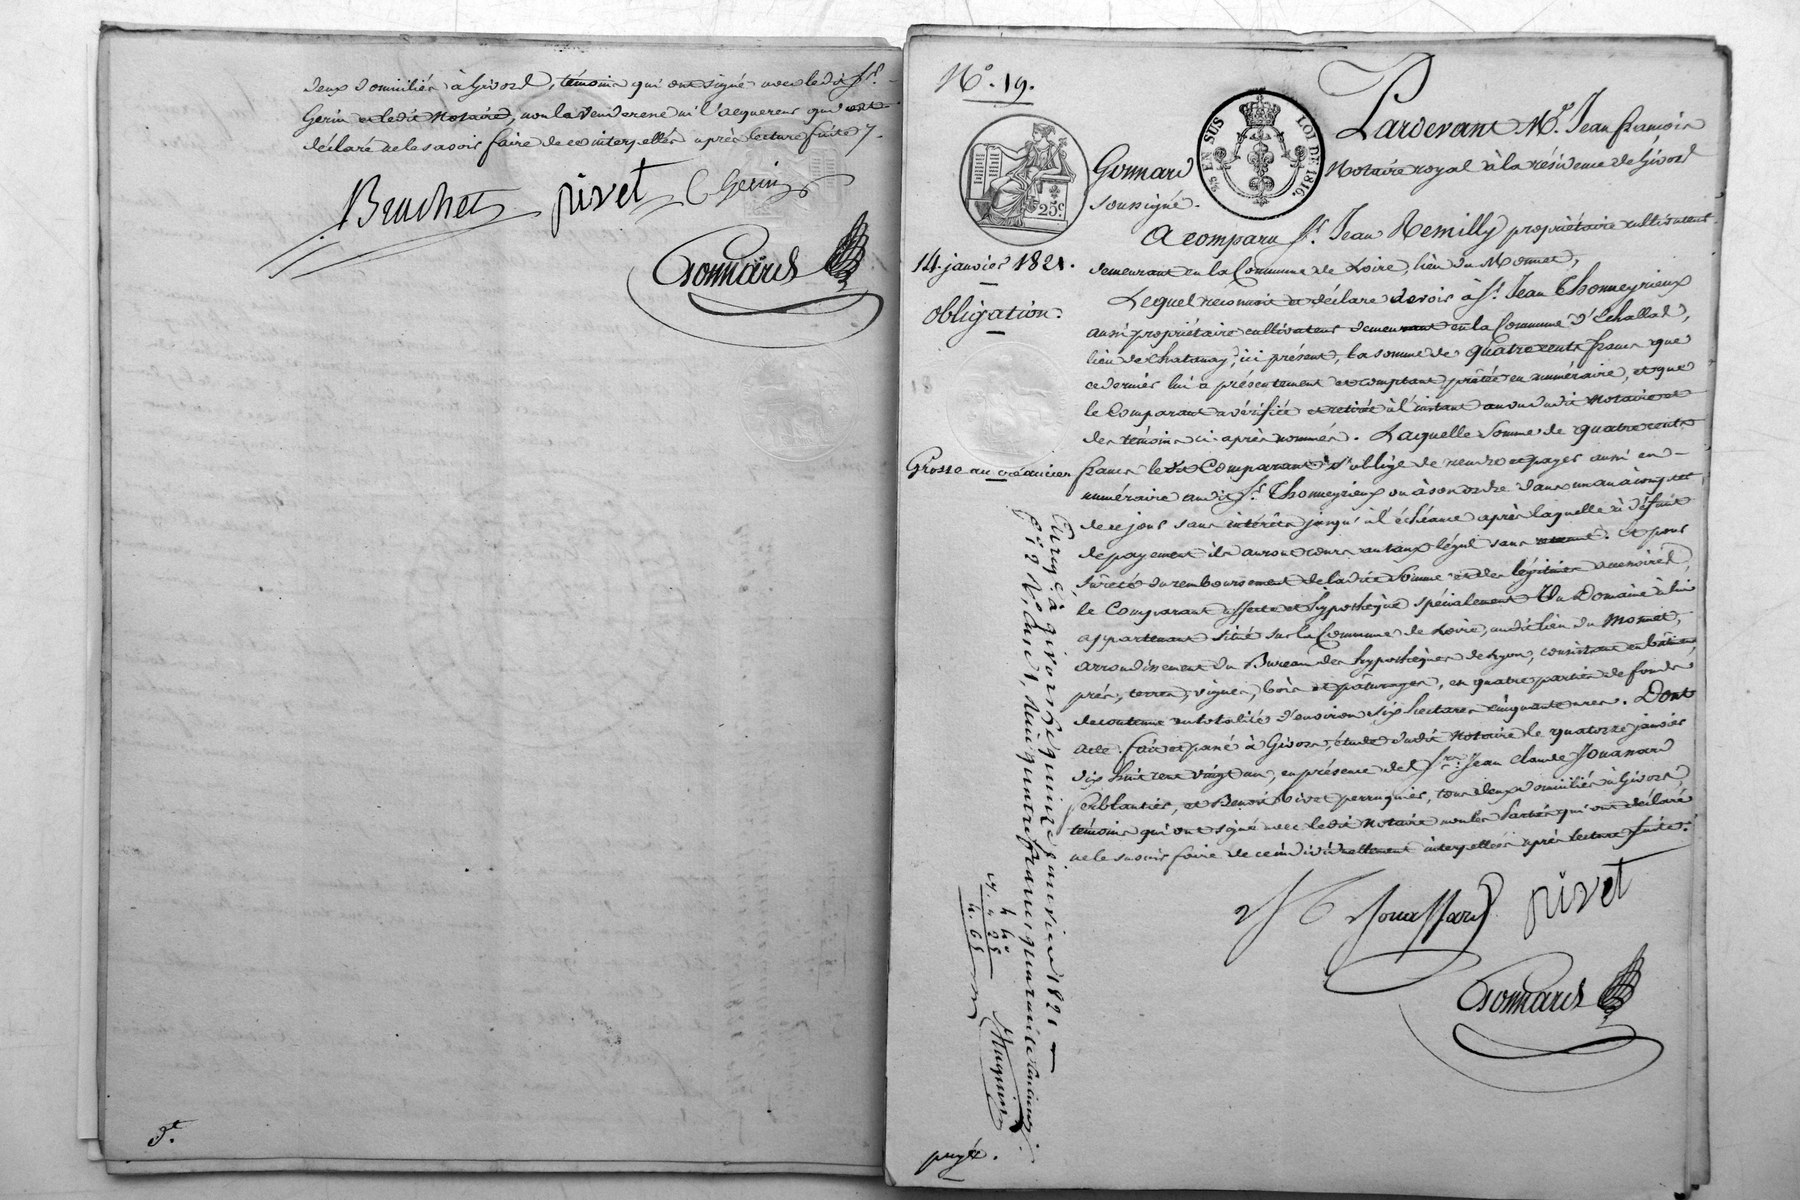 deux domiciliés à Givors, témoins qui ont signé avec ledit Sr.
Gerin et ledit Notaire, non la venderesse ni l'acquereur qui ont
déclaré ne le savoir faire de ce interpellés après lecture faite
Bruchet pivet Gerin
Gonnard
3e.
No. 19.
5/5 EN SUS LOI DE 1816.
25c
Pardevant Me. Jean françois
Gonnard Notaire royal à la résidence de Givors
soussigné.
A comparu Sr. Jean Remilly propriétaire cultivateur
14. janvier 1821.
demeurant en la Commune de Loire, lieu du Mornet,
Obligation.
Lequel reconnoit et déclare devoir à Sr. Jean Thonneyrieux
aussi propriétaire cultivateur demeurant en la Commune d'Echallas,
lieu de Chatanay, ici présent, la somme de quatre cents francs que
ce dernier lui a présentement et comptant prêtée en numéraire, et que
le Comparant a vérifiée et retirée à l'instant au vu dudit Notaire et
des témoins ci-après nommés. Laquelle somme de quatre cents
Grosse au créancier
francs ledit Comparant s'oblige de rendre et payer aussi en
numéraire audit Sr. Thonneyrieux ou à son ordre dans un an à compter
de ce jour sans intérêts jusqu'à l'échéance après laquelle à défaut
de payement ils auront cours au taux légal sans Et pour
sûreté du remboursement de ladite somme et des légitimes accessoires,
le Comparant affecte et hypothèque spécialement Un Domaine à lui
appartenant situé sur la Commune de Loire, audit lieu du Mornet,
arrondissement du Bureau des hypothèques de Lyon, consistant en bâtimens,
prés, terres, vignes, bois et pâturages, en quatre parties de fonds,
de contenue en totalité d'environ six hectares cinquante ares. Dont
acte. fait et passé à Givors, étude dudit Notaire le quatorze janvier
dix huit cent vingt un, en présence des Srs. Jean Claude Jouassard
ferblantier, et Benoit Pivet perruquier, tous deux domiciliés à Givors,
témoins qui ont signé avec ledit Notaire non les Parties qui ont déclaré
ne le savoir faire de ce individuellement interpellées après lecture faite.
Jouassard pivet
Gonnard
Enregé. à givors le quinze janvier 1821
quatre francs quarante centimes
4. 40
4. 65
payé.